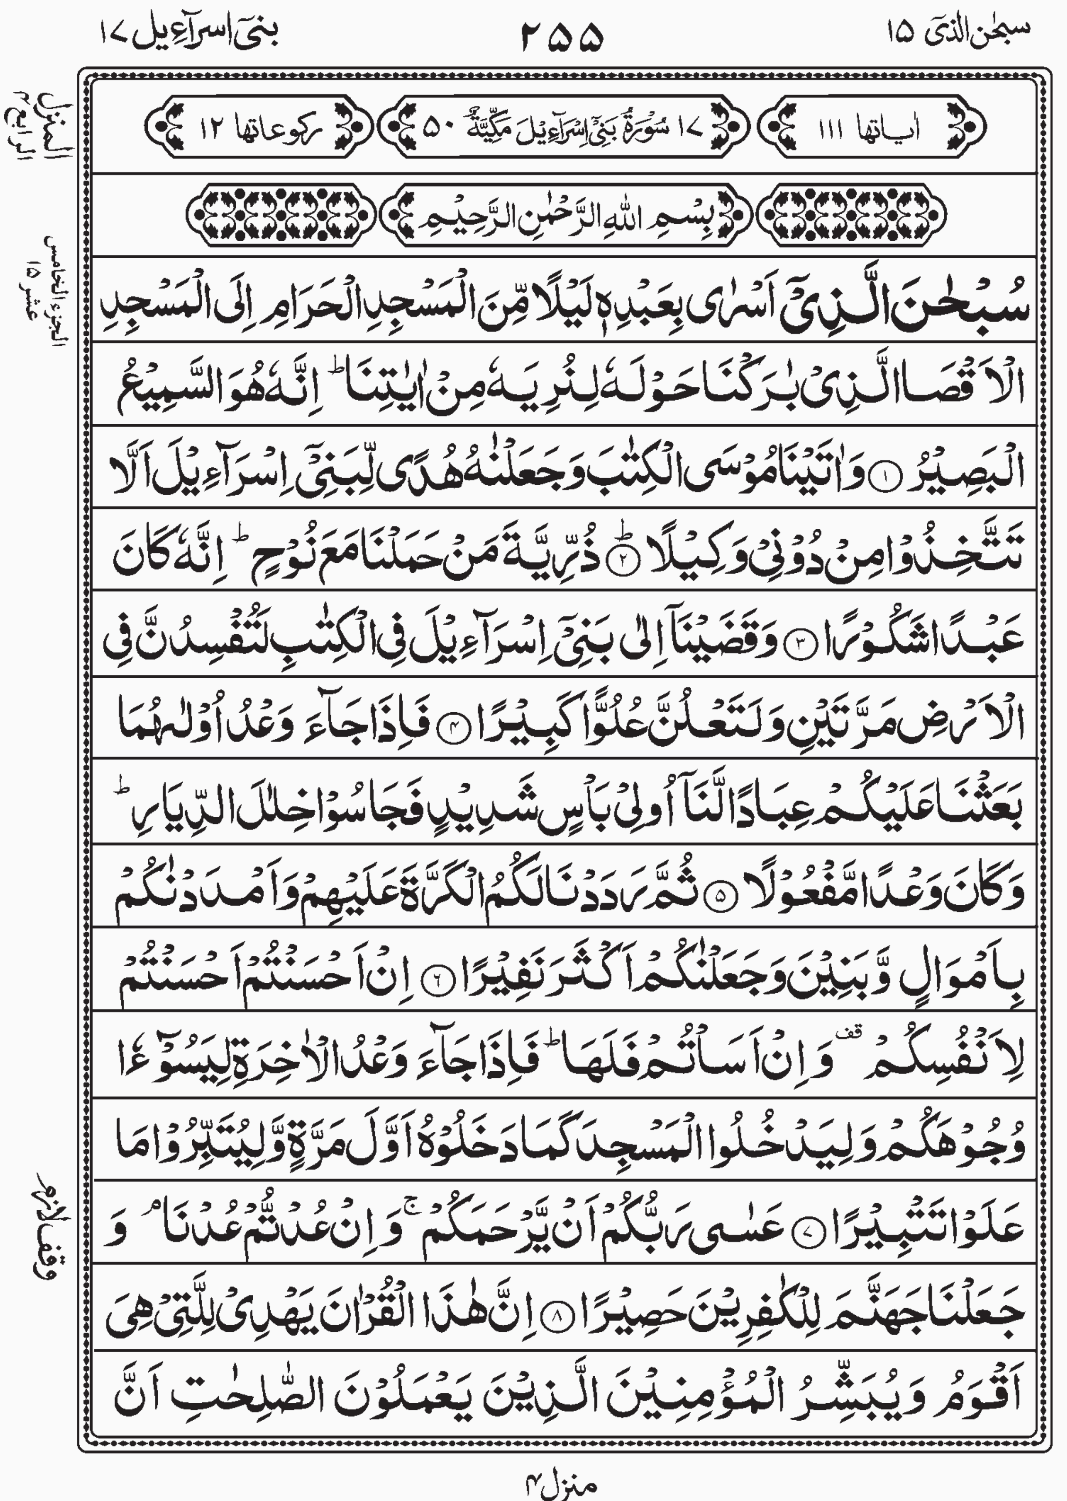 سبحٰن الذیٓ ١٥
٢٥٥
بنیٓ اسرآءیل ١٧
المنزل الرابع ٤
اٰیاتها ١١١
١٧ سُوْرَةُ بَنِیْٓ اِسْرَآءِیْلَ مَکِّیَّةٌ ٥٠
رکوعاتها ١٢
بِسْمِ اللهِ الرَّحْمٰنِ الرَّحِیْمِ
الجزء الخامس عشر ١٥
سُبْحٰنَ الَّذِیْٓ اَسْرٰی بِعَبْدِهٖ لَیْلًا مِّنَ الْمَسْجِدِ الْحَرَامِ اِلَی الْمَسْجِدِ
الْاَقْصَا الَّذِیْ بٰرَکْنَا حَوْلَهٗ لِنُرِیَهٗ مِنْ اٰیٰتِنَا ؕ اِنَّهٗ هُوَ السَّمِیْعُ
الْبَصِیْرُ ﴿١﴾ وَ اٰتَیْنَا مُوْسَی الْکِتٰبَ وَ جَعَلْنٰهُ هُدًی لِّبَنِیْٓ اِسْرَآءِیْلَ اَلَّا
تَتَّخِذُوْا مِنْ دُوْنِیْ وَکِیْلًا ﴿٢﴾ؕ ذُرِّیَّةَ مَنْ حَمَلْنَا مَعَ نُوْحٍ ؕ اِنَّهٗ کَانَ
عَبْدًا شَکُوْرًا ﴿٣﴾ وَ قَضَیْنَآ اِلٰی بَنِیْٓ اِسْرَآءِیْلَ فِی الْکِتٰبِ لَتُفْسِدُنَّ فِی
الْاَرْضِ مَرَّتَیْنِ وَ لَتَعْلُنَّ عُلُوًّا کَبِیْرًا ﴿٤﴾ فَاِذَا جَآءَ وَعْدُ اُوْلٰىهُمَا
بَعَثْنَا عَلَیْکُمْ عِبَادًا لَّنَآ اُولِیْ بَاْسٍ شَدِیْدٍ فَجَاسُوْا خِلٰلَ الدِّیَارِ ؕ
وَ کَانَ وَعْدًا مَّفْعُوْلًا ﴿٥﴾ ثُمَّ رَدَدْنَا لَکُمُ الْکَرَّةَ عَلَیْهِمْ وَ اَمْدَدْنٰکُمْ
بِاَمْوَالٍ وَّ بَنِیْنَ وَ جَعَلْنٰکُمْ اَکْثَرَ نَفِیْرًا ﴿٦﴾ اِنْ اَحْسَنْتُمْ اَحْسَنْتُمْ
لِاَنْفُسِکُمْ قف وَ اِنْ اَسَاْتُمْ فَلَهَا ؕ فَاِذَا جَآءَ وَعْدُ الْاٰخِرَةِ لِیَسُوْٓءٗا
وُجُوْهَکُمْ وَ لِیَدْخُلُوا الْمَسْجِدَ کَمَا دَخَلُوْهُ اَوَّلَ مَرَّةٍ وَّ لِیُتَبِّرُوْا مَا
عَلَوْا تَتْبِیْرًا ﴿٧﴾ عَسٰی رَبُّکُمْ اَنْ یَّرْحَمَکُمْ ۚ وَ اِنْ عُدْتُّمْ عُدْنَا ۘ وَ
جَعَلْنَا جَهَنَّمَ لِلْکٰفِرِیْنَ حَصِیْرًا ﴿٨﴾ اِنَّ هٰذَا الْقُرْاٰنَ یَهْدِیْ لِلَّتِیْ هِیَ
اَقْوَمُ وَ یُبَشِّرُ الْمُؤْمِنِیْنَ الَّذِیْنَ یَعْمَلُوْنَ الصّٰلِحٰتِ اَنَّ
وقف لازم
منزل ٤